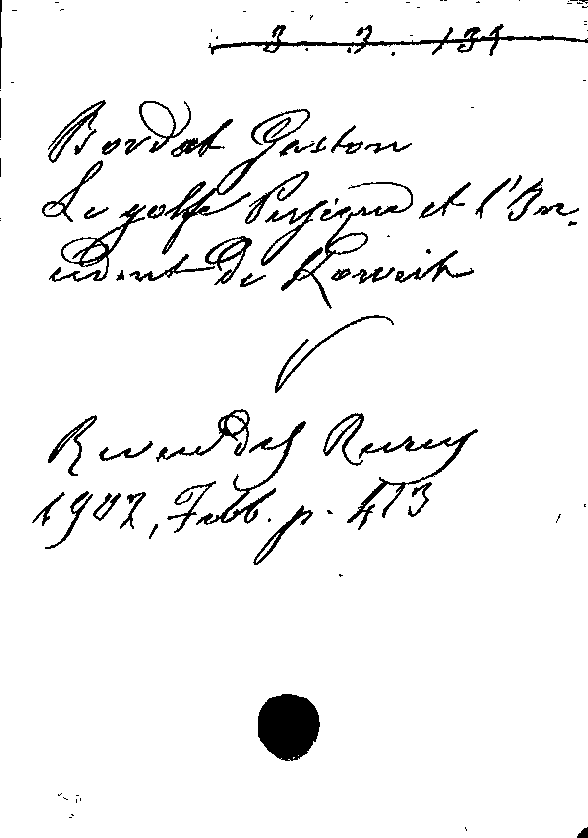 3. 3. 139
Bordat Gaston
Le golfe Persique et l'In-
cident de Koweit
Revue des Revues
1902, Febb. p. 413